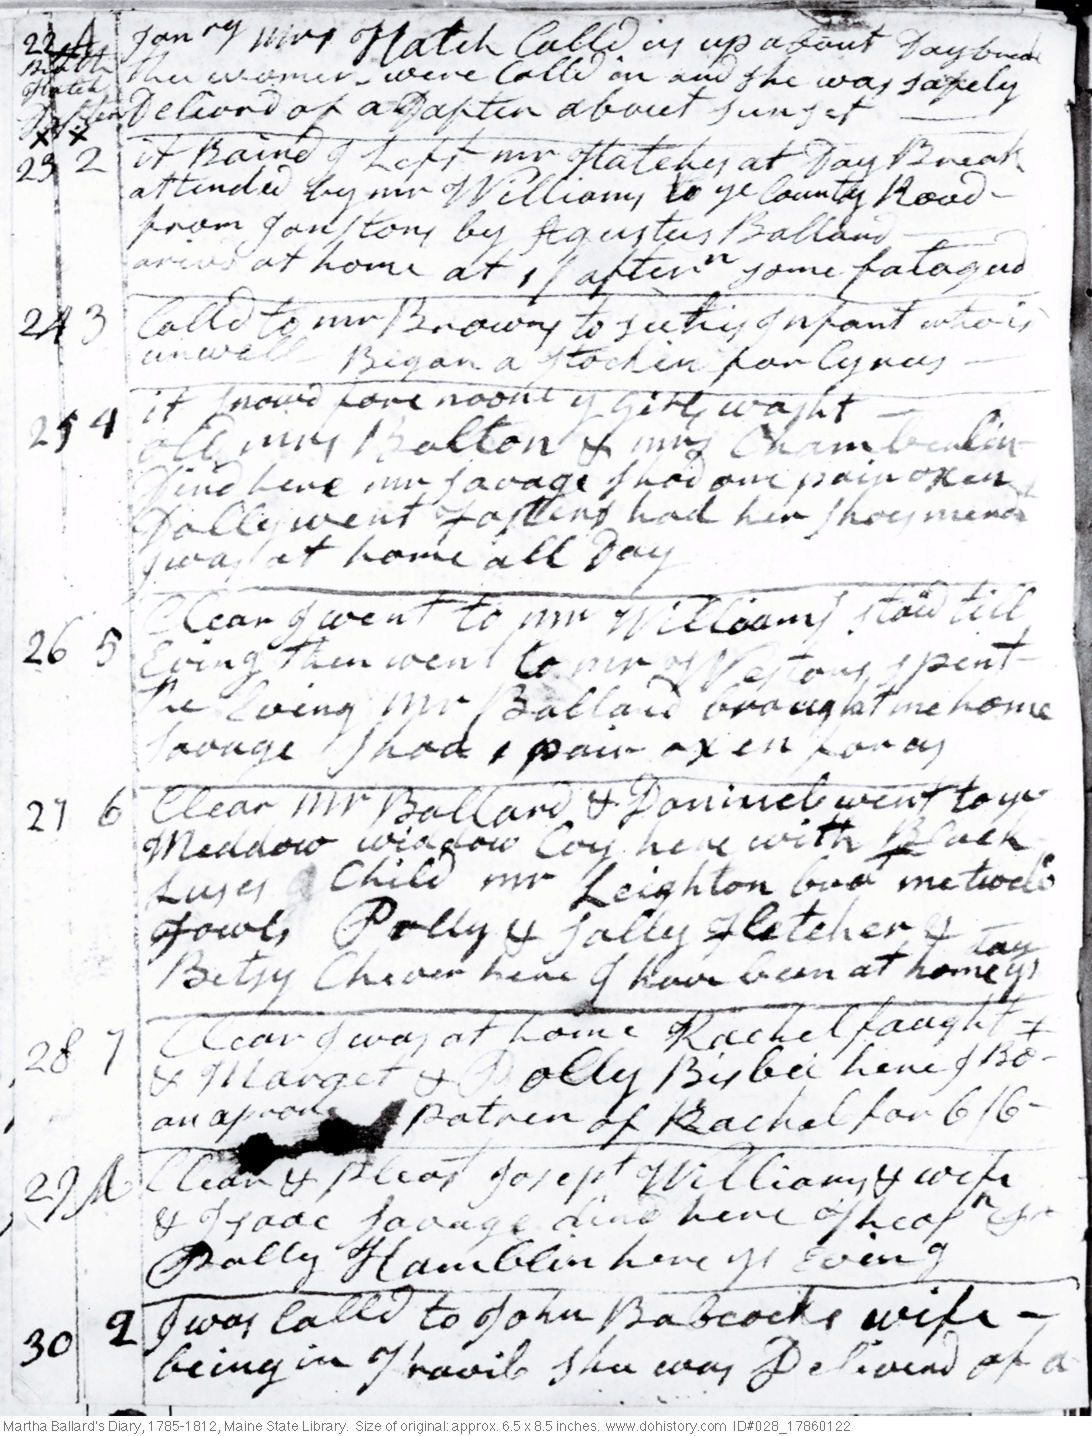 22 A Janry mrs Hatch Calld us up about Day break
Birth Hatch Dafter
thee women were Calld in and she was safely
Deliverd of a Dafter about sunset
x x
23 2 it Raind I Left mr Hatches at Day Break
attended by mr Williams to ye County Road
from Janstons by Agustus Ballard
arivd at home at 1 / aftern some fatagud
24 3 Calld to mr Browns to see his Infant who is
unwell Began a stockin for Cyrus
25 4 it snowd fore noone ye girls washt
old mrs Bolton & mrs Chamberlin
Dind here mr savage shod one pair oxen
Dolly went Fosters had her shoes mend
I was at home all Day
26 5 Clear I went to mr Williams staid till
Eving then went to mr Westons spent
the Eving mr Ballard brought me home
savage shod 1 pair oxen for us
27 6 Clear mr Ballard & Daniniel went to ye
Meddow widdow Coy here with Black
Luses Child mr Leighton bro't me two
Fowls Polly & sally Fletcher &
Betsy Chever here I have been at home ys Day
28 7 Clear I was at home Rachel faught
& Marget & Polly Bisbee here I Bo-
an apron Patren of Rachel for 6/6
29 A Clear & Pleast Joseph Williams & wife
& Isaac savage dind here
Polly Hamblin here ys Eving
30 2 I was Calld to John Babcocks wife
being in Travil shee was Deliverd of a
Martha Ballard's Diary, 1785-1812, Maine State Library. Size of original: approx. 6.5 x 8.5 inches. www.dohistory.com ID#028_17860122